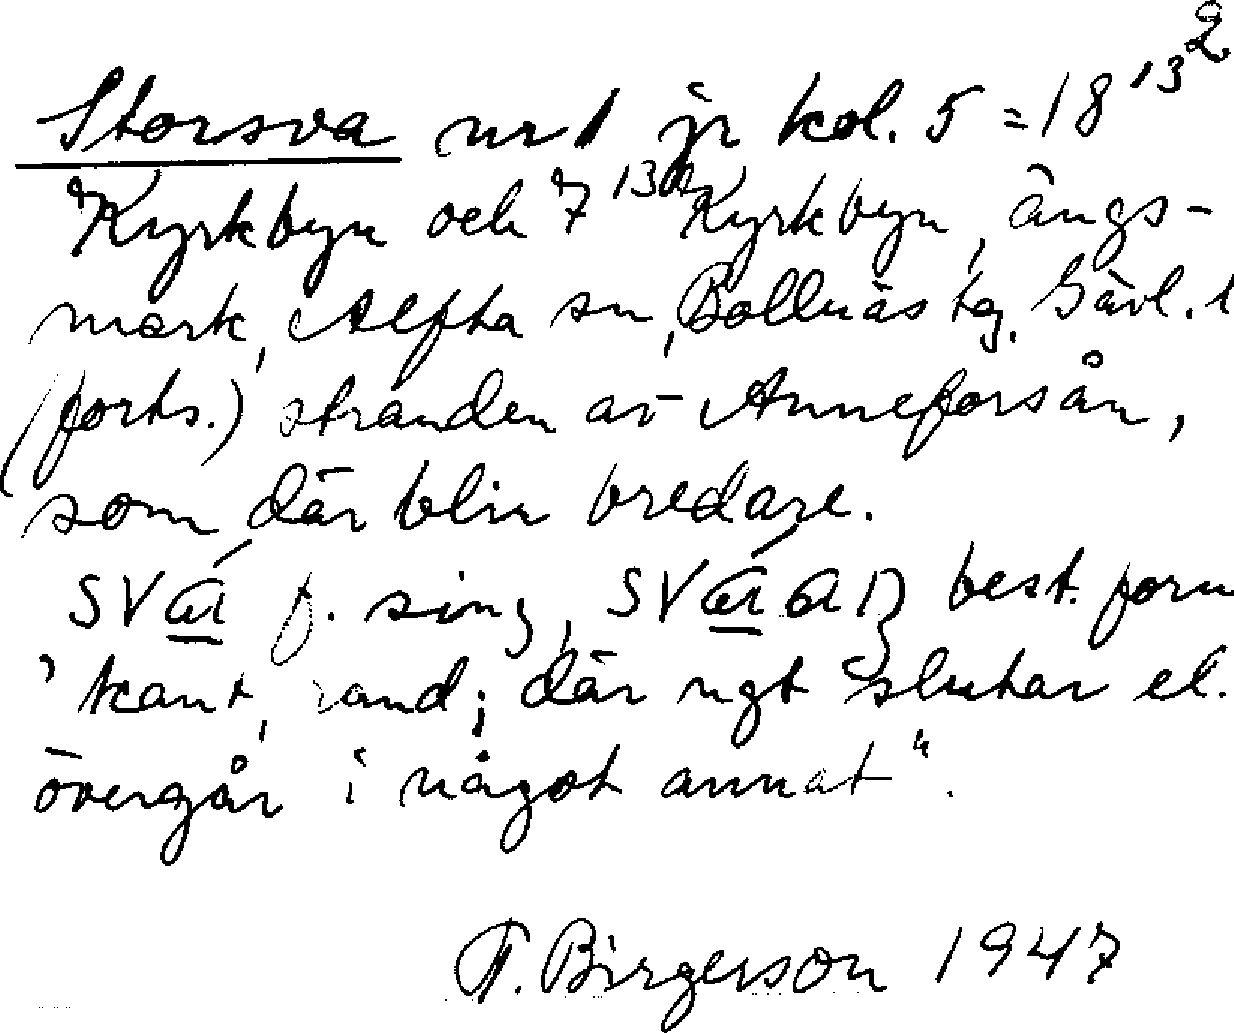 2
Storsva nr 1 jr kol. 5 = 18 13
Kyrkbyn och 7 13 Kyrkbyn, ängs-
mark, Alfta sn, Bollnäs tg. Gävl. l
(forts.) stranden av Anneforsån,
som där blir bredare.
f. sing, best. form
'kant, rand; där ngt slutar el.
övergår i något annat".
T. Birgerson 1947